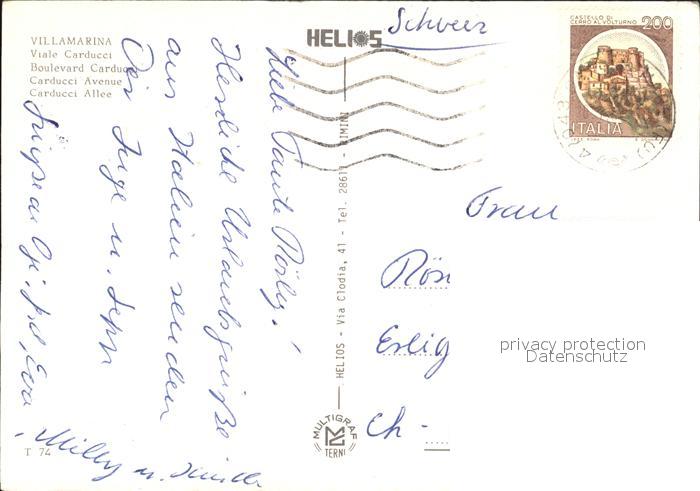 VILLAMARINA
Viale Carducci
Boulevard Carducc
Carducci Avenue
Carducci Allee
HELIOS
Schweiz
CASTELLO DI
CERRO AL VOLTURNO
200
ITALIA
Liebe Tante Rösly!
Herzliche Urlaubsgrüße
aus Italien senden
Dir Inge u. Sepp
Eva
Milly u.
HELIOS - Via Clodia, 41 - Tel. 28611 - RIMINI
MULTIGRAF
TERNI
T 74
Frau
Rös
Erlig
Ch-
privacy protection
Datenschutz